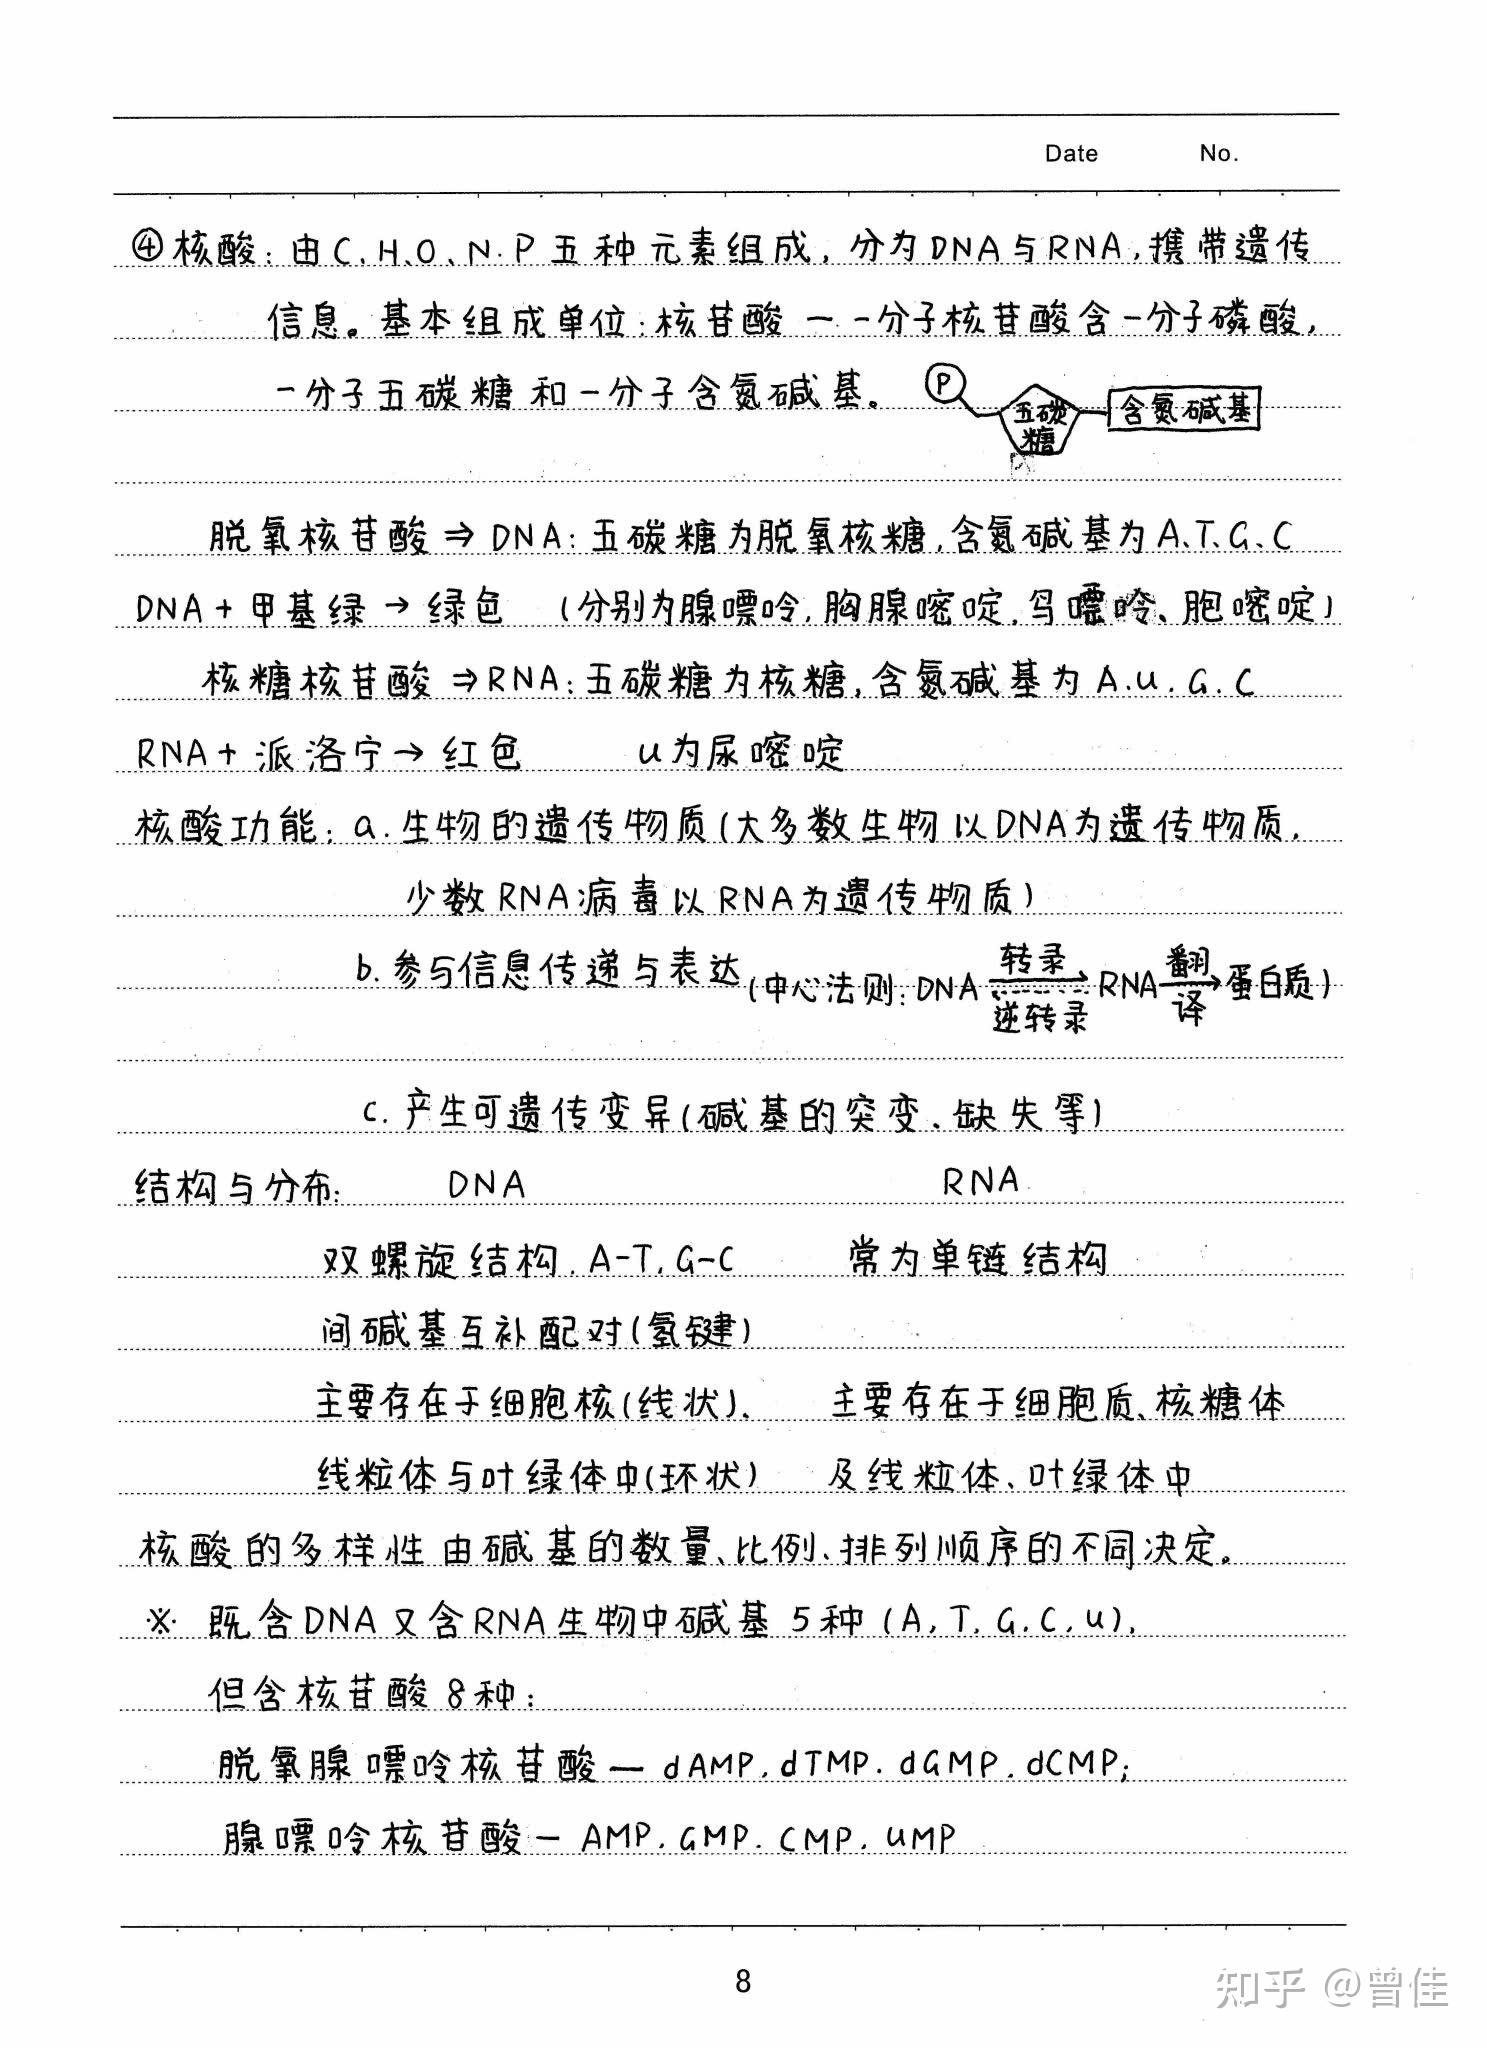 Date No.
④核酸：由C、H、O、N、P五种元素组成，分为DNA与RNA，携带遗传
信息。基本组成单位：核苷酸 — 一分子核苷酸含一分子磷酸，
一分子五碳糖和一分子含氮碱基。 P 五碳糖 含氮碱基
脱氧核苷酸⇒DNA：五碳糖为脱氧核糖，含氮碱基为A、T、G、C
DNA+甲基绿→绿色 （分别为腺嘌呤，胸腺嘧啶，鸟嘌呤、胞嘧啶）
核糖核苷酸⇒RNA：五碳糖为核糖，含氮碱基为A.U.G.C
RNA+派洛宁→红色 U为尿嘧啶
核酸功能：a.生物的遗传物质（大多数生物以DNA为遗传物质，
少数RNA病毒以RNA为遗传物质）
b.参与信息传递与表达（中心法则：DNA 转录 逆转录 RNA 翻译→蛋白质）
c.产生可遗传变异（碱基的突变、缺失等）
结构与分布： DNA RNA
双螺旋结构，A-T，G-C 常为单链结构
间碱基互补配对（氢键）
主要存在于细胞核（线状）、 主要存在于细胞质、核糖体
线粒体与叶绿体中（环状） 及线粒体、叶绿体中
核酸的多样性由碱基的数量、比例、排列顺序的不同决定。
※ 既含DNA又含RNA生物中碱基5种（A,T,G,C,U），
但含核苷酸8种：
脱氧腺嘌呤核苷酸—dAMP.dTMP.dGMP.dCMP;
腺嘌呤核苷酸—AMP.GMP.CMP.UMP
8
知乎 @曾佳